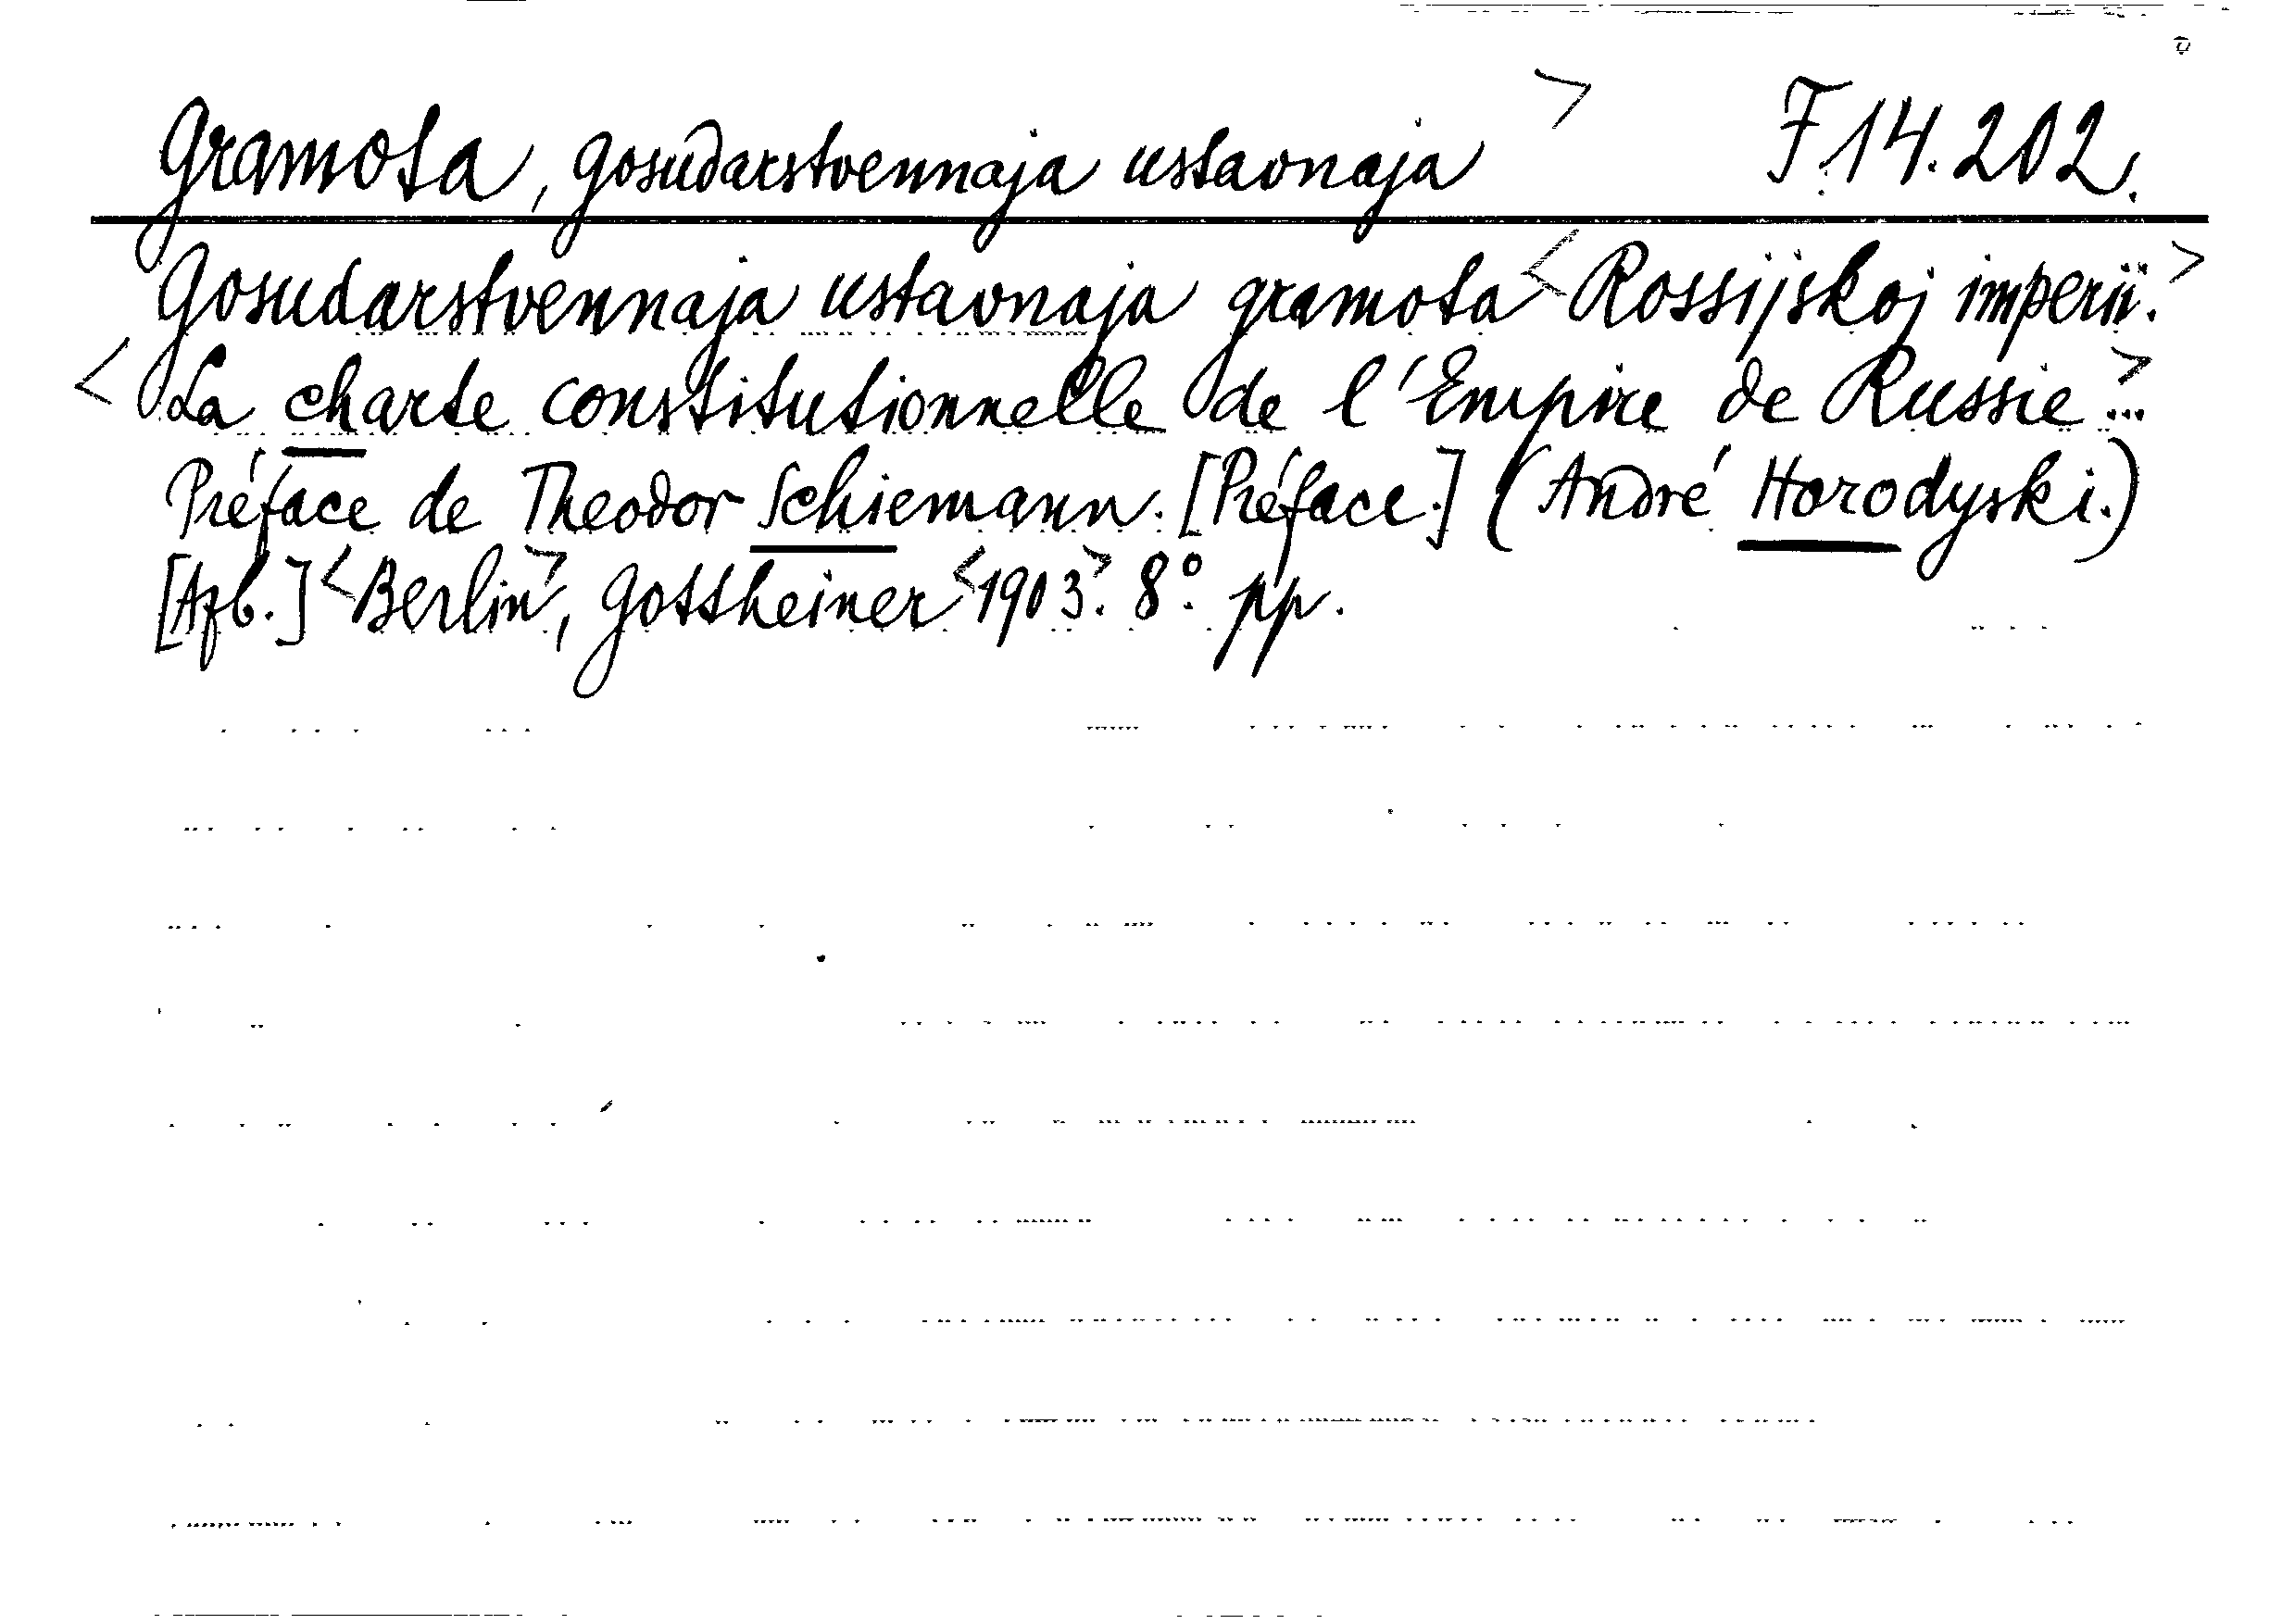 Gramota, gosudarstvennaja ustavnaja > F 14.202.
Gosudarstvennaja ustavnaja gramota <Rossijskoj imperii.>
<La charte constitutionnelle de l'Empire de Russie>...
Préface de Theodor Schiemann. [Préface.] (André Horodyski.)
[Afb.] <Berlin>, Gottheiner <1903>. 8º. pp.